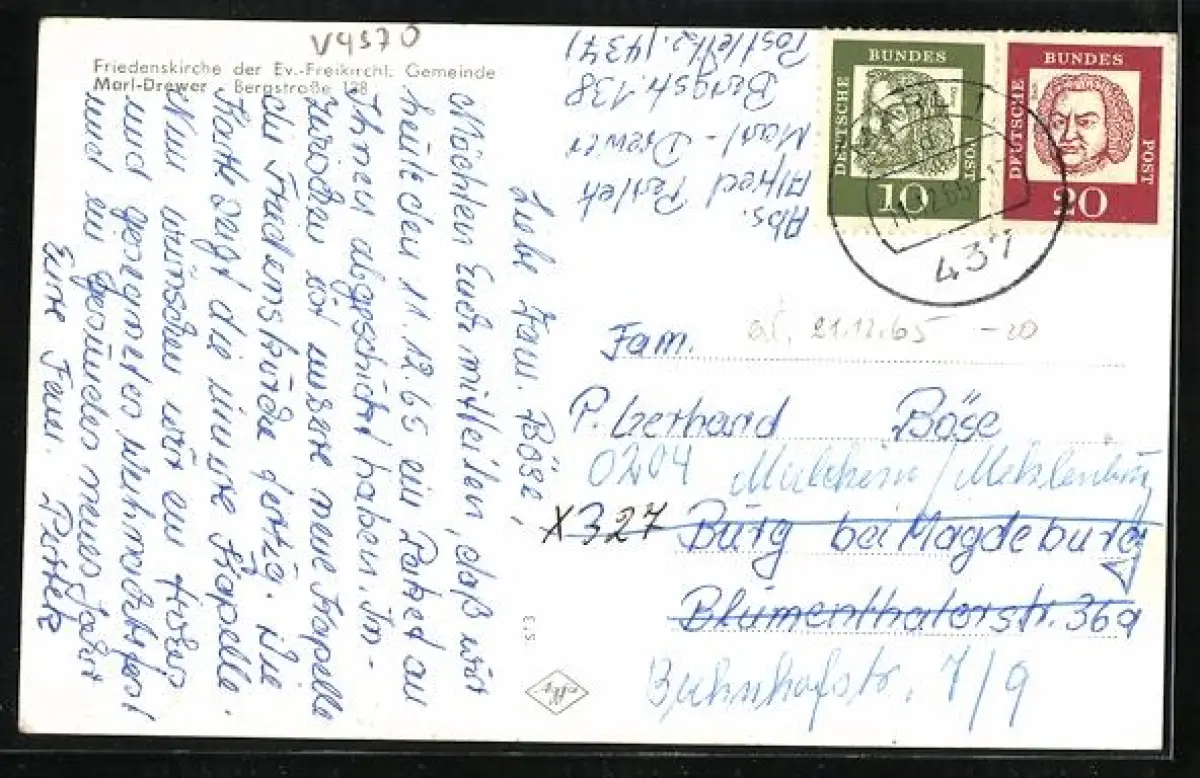 V4370
Friedenskirche der Ev.-Freikirchl. Gemeinde
Marl-Drewer - Bergstraße 138
Abs.
Alfred Pertek
Marl - Drewer
Bergstr. 138
Postleitz. (437)
DEUTSCHE BUNDES POST
10
DEUTSCHE BUNDES POST
20
MARL 1
437
Liebe Fam. Böse,
Möchten Euch mitteilen, daß wir
heute den 11.12.65 ein Paket an
Ihnen abgeschickt haben. In-
zwischen ist unsere neue Kapelle
die Friedenskirche fertig. Die
Karte zeigt die unsere Kapelle.
Nun wünschen wir ein frohes
und gesegnetes Weihnachtsfest
und ein gesundes neues Jahr
Eure Fam. Pertek
21.12.65 -20
Fam.
P. Gerhard Böse
0204 Malchin / Mecklenburg
X327 Burg bei Magdeburg
Blumenthalerstr. 36a
Bahnhofstr. 7/9